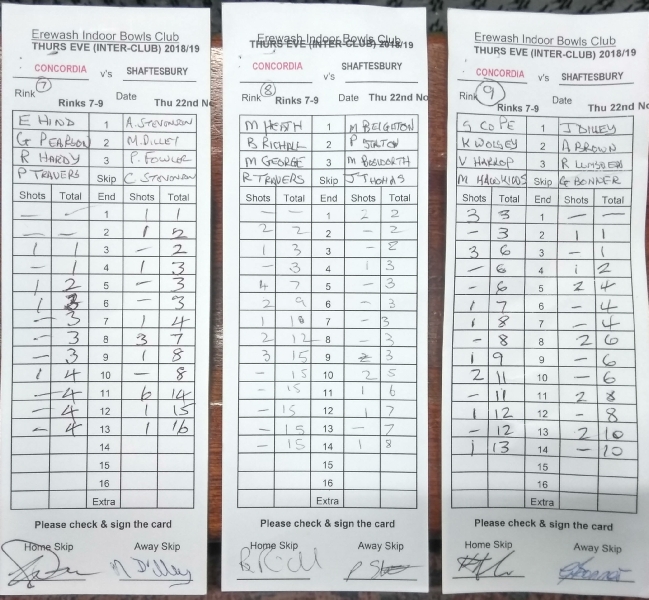 Erewash Indoor Bowls Club
THURS EVE (INTER-CLUB) 2018/19
CONCORDIA v's SHAFTESBURY
Rink 7 Rinks 7-9 Date Thu 22nd No
E HIND 1 A. STEVONSON
G PEARSON 2 M. DILLEY
R HARDY 3 P. FOWLER
P TRAVERS Skip C STEVONSON
Shots Total End Shots Total
— — 1 1 1
— — 2 1 2
1 1 3 — 2
— 1 4 1 3
1 2 5 — 3
1 3 6 — 3
— 3 7 1 4
— 3 8 3 7
— 3 9 1 8
1 4 10 — 8
— 4 11 6 14
— 4 12 1 15
— 4 13 1 16
14
15
16
Extra
Please check & sign the card
Home Skip Away Skip
M Dilley
Erewash Indoor Bowls Club
THURS EVE (INTER-CLUB) 2018/19
CONCORDIA v's SHAFTESBURY
Rink 8 Rinks 7-9 Date Thu 22nd No
M HEATH 1 M BEIGHTON
B RICHALL 2 P STATON
M GEORGE 3 M BOSWORTH
R TRAVERS Skip J THOMAS
Shots Total End Shots Total
— — 1 2 2
2 2 2 — 2
1 3 3 — 2
— 3 4 1 3
4 7 5 — 3
2 9 6 — 3
1 10 7 — 3
2 12 8 — 3
3 15 9 3
— 15 10 2 5
— 15 11 1 6
— 15 12 1 7
— 15 13 — 7
— 15 14 1 8
15
16
Extra
Please check & sign the card
Home Skip Away Skip
Erewash Indoor Bowls Club
THURS EVE (INTER-CLUB) 2018/19
CONCORDIA v's SHAFTESBURY
Rink 9 Rinks 7-9 Date Thu 22nd No
S COPE 1 J DILLEY
K WOLSEY 2 A BROWN
V HARROP 3 R LUMSDEN
M HAWKINS Skip G BONNER
Shots Total End Shots Total
3 3 1 — —
— 3 2 1 1
3 6 3 — 1
— 6 4 1 2
— 6 5 2 4
1 7 6 — 4
1 8 7 — 4
— 8 8 2 6
1 9 9 — 6
2 11 10 — 6
— 11 11 2 8
1 12 12 — 8
— 12 13 2 10
1 13 14 — 10
15
16
Extra
Please check & sign the card
Home Skip Away Skip